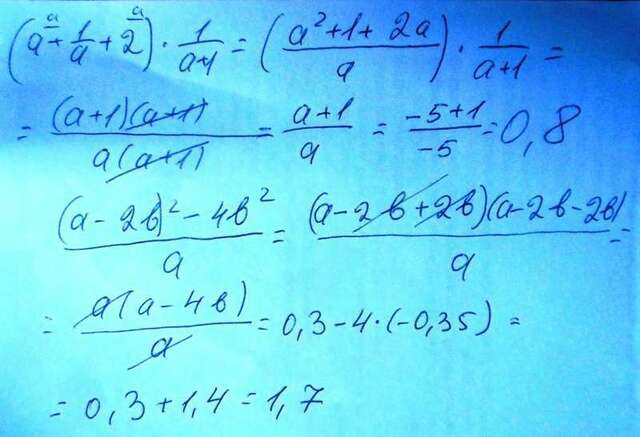 (a^{\overline{a}} + \frac{1}{a} + 2^{\overline{a}}) · \frac{1}{a+1} = (\frac{a²+1+2a}{a}) · \frac{1}{a+1} =
= \frac{(a+1)(a+1)}{a(a+1)} = \frac{a+1}{a} = \frac{-5+1}{-5} = 0,8
\frac{(a-2b)²-4b²}{a} = \frac{(a-2b+2b)(a-2b-2b)}{a} =
= \frac{a(a-4b)}{a} = 0,3-4·(-0,35) =
= 0,3+1,4=1,7